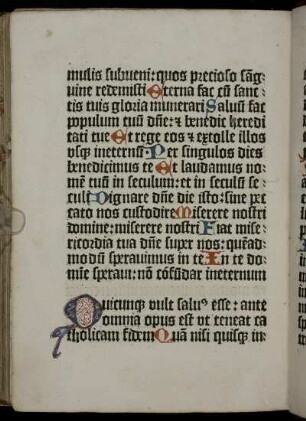 mulis subueni: quos precioso sāg-
uine redemisti Eterna fac cū sanc-
tis tuis gloria munerari Saluū fac
populum tuū dn̄e: & benedic heredi
tati tue Et rege eos & extolle illos
vsq; ineternū Per singulos dies
benedicimus te Et laudamus no-
mē tuū in seculum: et in seculū se-
culi Dignare dn̄e die isto: sine pec
cato nos custodire Miserere nostri
domine: miserere nostri Fiat mise-
ricordia tua dn̄e super nos: quēad-
modū sperauimus in te In te do-
mīe speraui: nō cōfūdar ineternum
Quicunq; vult saluꝰ esse: ante
omnia opus est vt teneat ca
tholicam fidem Quā nisi quisq; in-